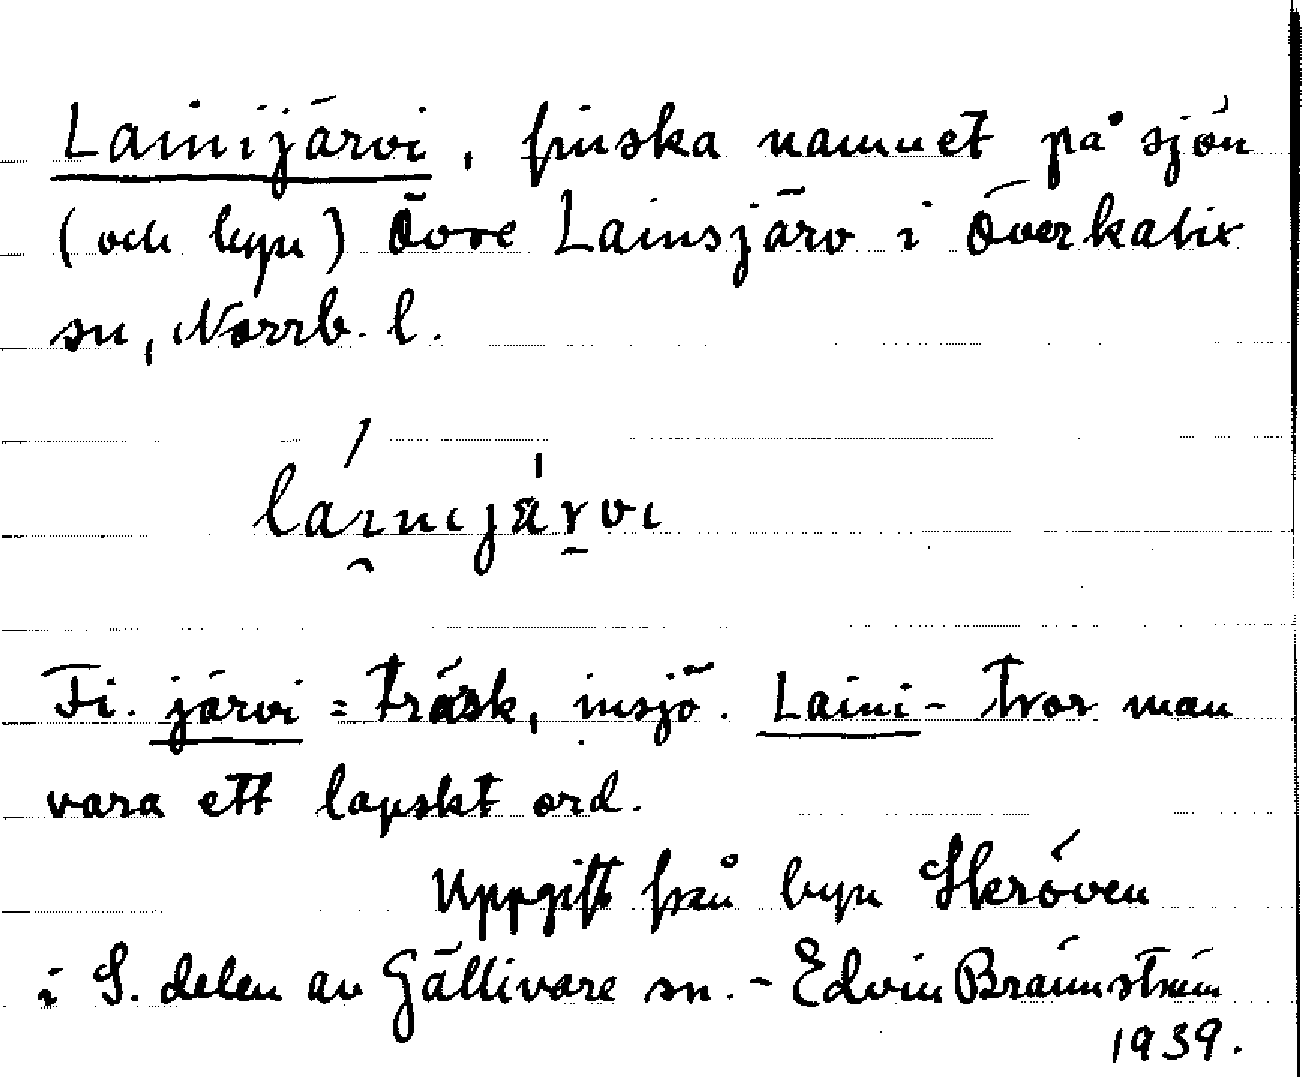 Lainijärvi, finska namnet på sjön
(och byn) Övre Lainsjärv i Överkalix
sn, Norrb. l.
láı̯nijä̀r̠vi
Fi. järvi = träsk, insjö. Laini- tror man
vara ett lapskt ord.
Uppgift från byn Skröven
i S. delen av Gällivare sn. - Edvin Brännström
1939.